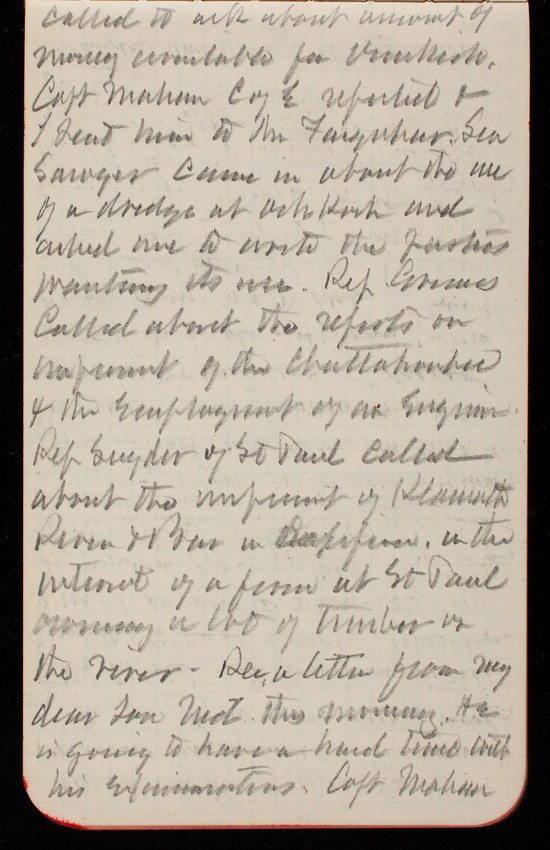 called to ask about amount of
money available for
Capt Mahan Cog E reported &
I sent him to the Farquhar. Sen
Sawyer came in about the use
of a dredge at Oshkosh and
asked me to write the parties
wanting its use. Rep
Called about the reports on
impment of the Chattahoochee
& the Employment of an Engineer.
Rep Snyder of St Paul Called
about the impment of Klamath
River & Bar in in the
interest of a firm at St Paul
owning a lot of timber on
the river - Rec. a letter from my
dear Son this morning. He
is going to have a hard time with
his Examinations. Capt Mahan